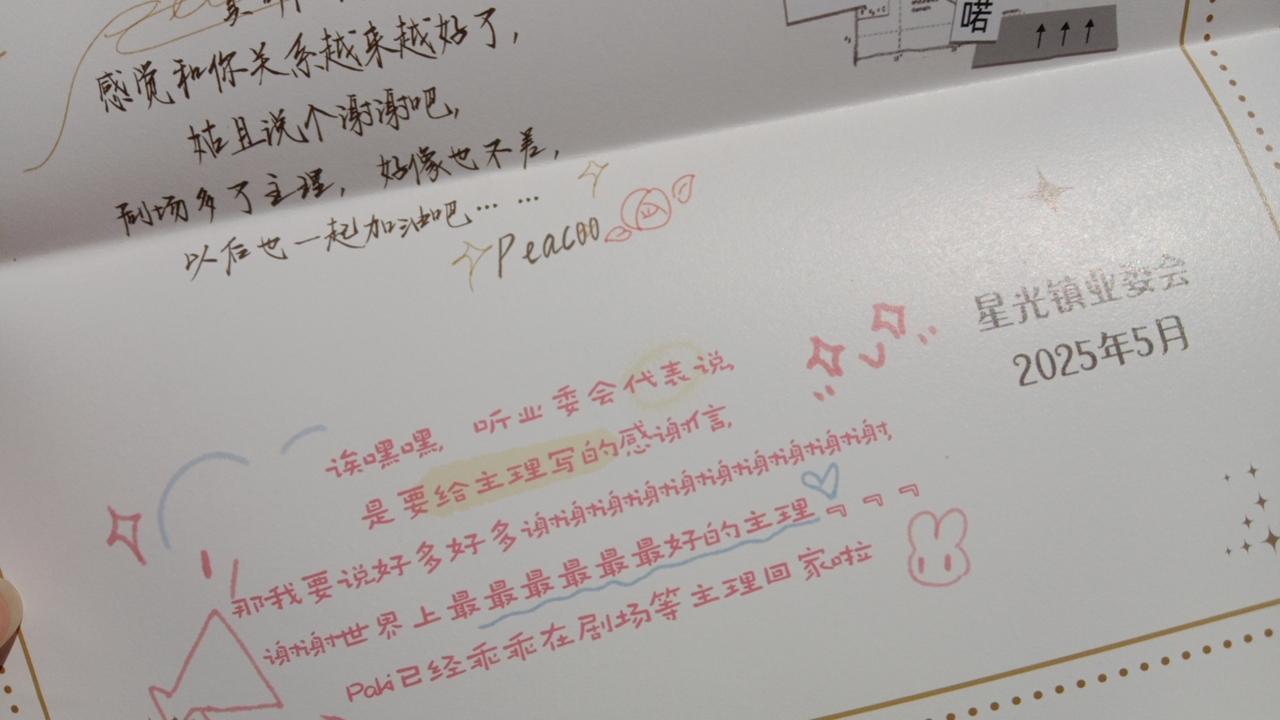 感觉和你关系越来越好了，
姑且说个谢谢吧，
剧场多了主理，好像也不差，
以后也一起加油吧……
Peacoo
喏
星光镇业委会
2025年5月
诶嘿嘿，听业委会代表说，
是要给主理写的感谢信，
那我要说好多好多谢谢谢谢谢谢谢谢谢谢谢谢，
谢谢世界上最最最最最最好的主理~~~
Paki已经乖乖在剧场等主理回家啦